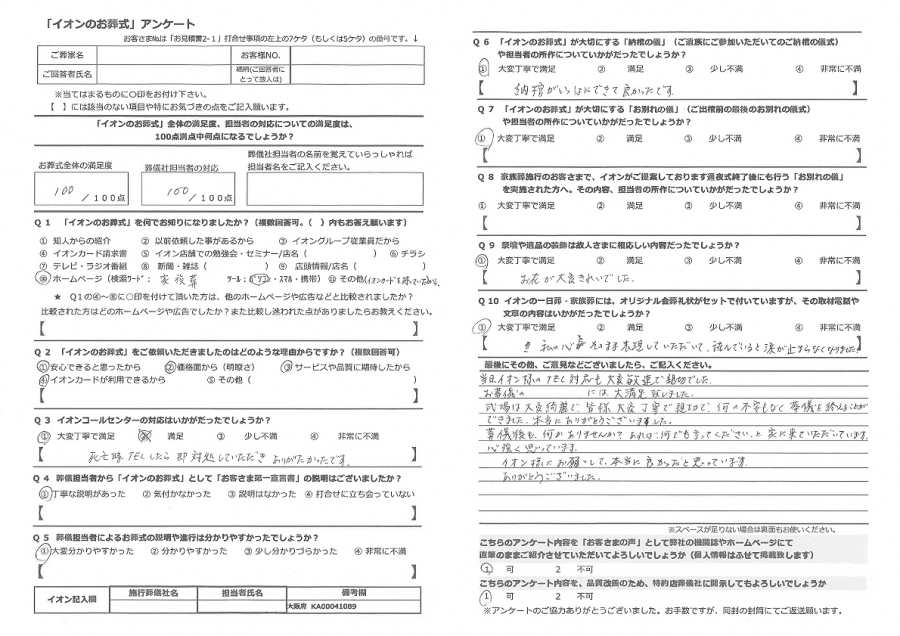 「イオンのお葬式」アンケート
お客さまNo.は「お見積書2-1」打合せ事項の左上の7ケタ（もしくは5ケタ）の番号です。↓
ご葬家名
お客様NO.
ご回答者氏名
続柄(ご回答者に
とって故人は)
※当てはまるものに○印をお付け下さい。
【　】には該当のない項目や特にお気づきの点をご記入願います。
「イオンのお葬式」全体の満足度、担当者の対応についての満足度は、
100点満点中何点になるでしょうか？
お葬式全体の満足度
100 ／100点
葬儀社担当者の対応
100 ／100点
葬儀社担当者の名前を覚えていらっしゃれば
担当者名をご記入ください。
Q 1 「イオンのお葬式」を何でお知りになりましたか？（複数回答可。（　）内もお答え願います）
① 知人からの紹介 ② 以前依頼した事があるから ③ イオングループ従業員だから
④ イオンカード請求書 ⑤ イオン店舗での勉強会・セミナー/店名（　） ⑥ チラシ
⑦ テレビ・ラジオ番組 ⑧ 新聞・雑誌（　） ⑨ 店頭情報/店名（　）
⑩ ホームページ（検索ﾜｰﾄﾞ： 家族葬 ﾂｰﾙ：ﾊﾟｿｺﾝ・ｽﾏﾎ・携帯） ⑪ その他(イオンカードを持っていたから。
★ Q1の④～⑩に○印を付けて頂いた方は、他のホームページや広告などと比較されましたか？
比較された方はどのホームページや広告でしたか？また比較し迷われた点がありましたらお教えください。
【　】
Q 2 「イオンのお葬式」をご依頼いただきましたのはどのような理由からですか？（複数回答可）
①安心できると思ったから ②価格面から（明瞭さ） ③サービスや品質に期待したから
④イオンカードが利用できるから ⑤その他（　）
【　】
Q 3 イオンコールセンターの対応はいかがだったでしょうか？
① 大変丁寧で満足 ② 満足 ③ 少し不満 ④ 非常に不満
【 死亡時TELしたら即対処していただきありがたかったです。 】
Q 4 葬儀担当者から「イオンのお葬式」として「お客さま第一宣言書」の説明はございましたか？
①丁寧な説明があった ② 気付かなかった ③ 説明はなかった ④ 打合せに立ち会っていない
【　】
Q 5 葬儀担当者によるお葬式の説明や進行は分かりやすかったでしょうか？
①大変分かりやすかった ② 分かりやすかった ③ 少し分かりづらかった ④ 非常に不満
【　】
イオン記入欄
施行葬儀社名
担当者氏名
備考欄
大阪府 KA00041089
Q 6 「イオンのお葬式」が大切にする「納棺の儀」（ご遺族にご参加いただいてのご納棺の儀式）
や担当者の所作についていかがだったでしょうか？
① 大変丁寧で満足 ② 満足 ③ 少し不満 ④ 非常に不満
【 納棺がいっしょにできて良かったです。 】
Q 7 「イオンのお葬式」が大切にする「お別れの儀」（ご出棺前の最後のお別れの儀式）
や担当者の所作についていかがだったでしょうか？
① 大変丁寧で満足 ② 満足 ③ 少し不満 ④ 非常に不満
【　】
Q 8 家族葬施行のお客さまで、イオンがご提案しております通夜式終了後にも行う「お別れの儀」
を実施された方へ。その内容、担当者の所作についていかがだったでしょうか？
① 大変丁寧で満足 ② 満足 ③ 少し不満 ④ 非常に不満
【　】
Q 9 祭壇や遺品の装飾は故人さまに相応しい内容だったでしょうか？
① 大変丁寧で満足 ② 満足 ③ 少し不満 ④ 非常に不満
【 お花が大変きれいでした。 】
Q 10 イオンの一日葬・家族葬には、オリジナル会葬礼状がセットで付いていますが、その取材電話や
文章の内容はいかがだったでしょうか？
① 大変丁寧で満足 ② 満足 ③ 少し不満 ④ 非常に不満
【 !! 私の心をそのまま表現していただいて、読んでいると涙が止まらなくなりました!! 】
最後にその他、ご意見などございましたら、ご記入ください。
当日イオン様のTEL対応も大変敏速で親切でした。
お葬儀の　には大満足致しました。
式場は大変綺麗で、皆様大変丁寧で親切で、何の不安もなく葬儀を終えることが
できました。本当にありがとうございました。
葬儀後も、何かありませんか？あれば、何でも言ってください。と家に来ていただいています。
心強く思っています。
イオン様にお願いして、本当に良かったと思っています。
ありがとうございました。
※スペースが足りない場合は裏面もお使いください。
こちらのアンケート内容を「お客さまの声」として弊社の機関誌やホームページにて
直筆のままご紹介させていただいてよろしいでしょうか（個人情報はふせて掲載致します）
1 可 2 不可
こちらのアンケート内容を、品質改善のため、特約店葬儀社に開示してもよろしいでしょうか
1 可 2 不可
※アンケートのご協力ありがとうございました。お手数ですが、同封の封筒にてご返送願います。